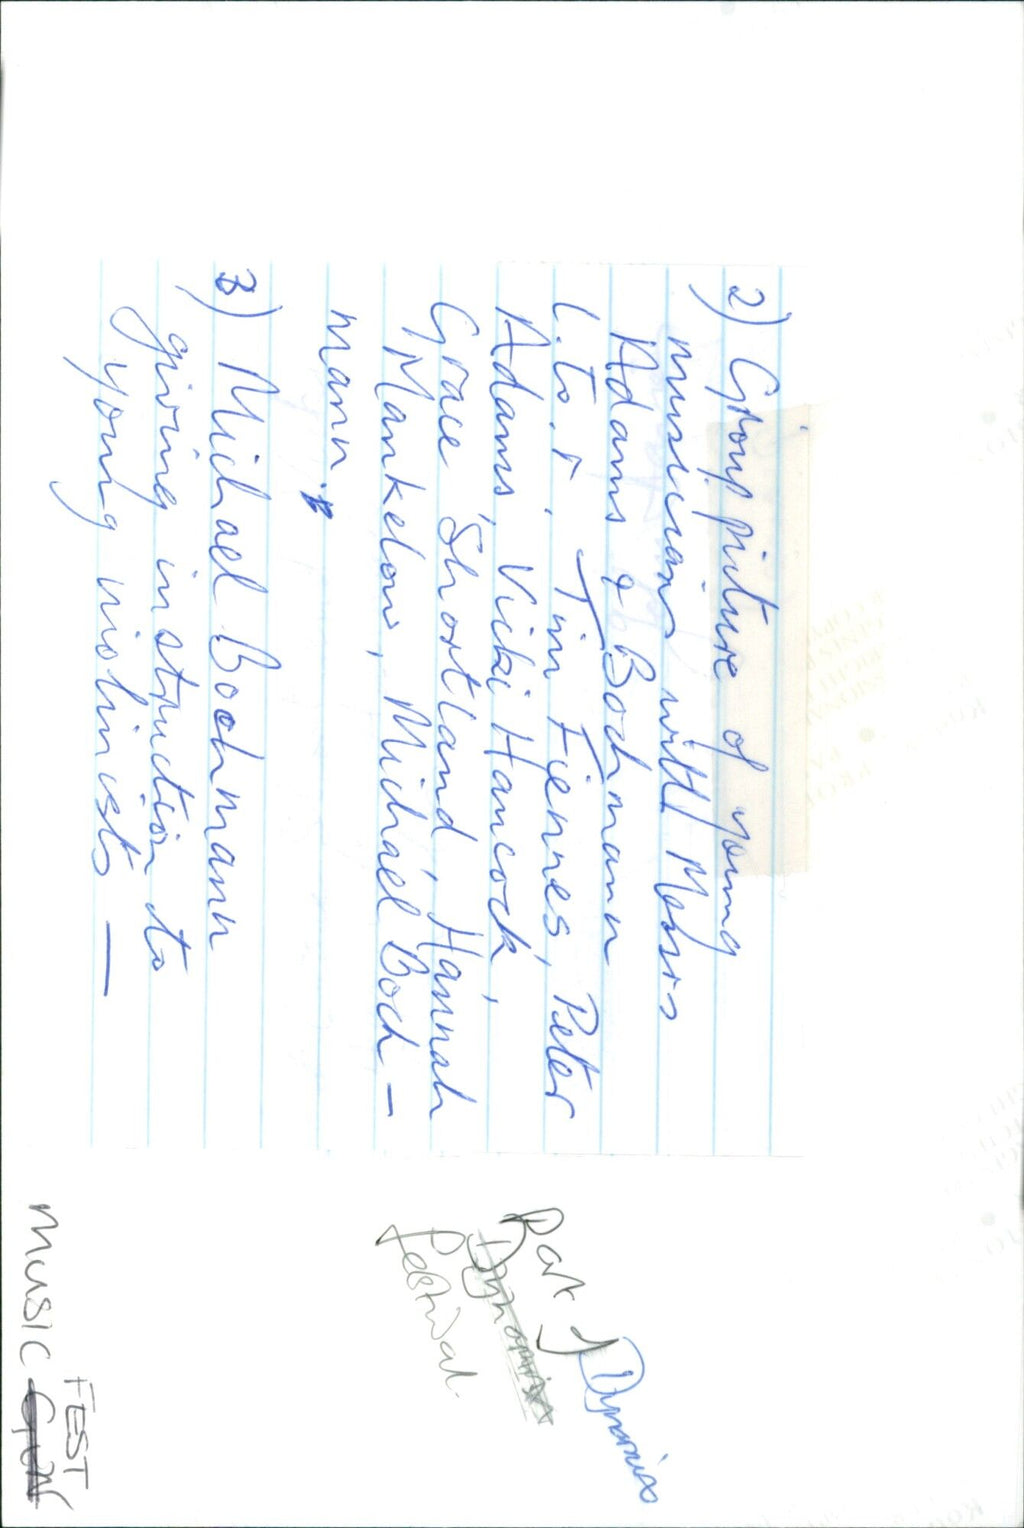 2) Group picture of young
musicians with Messrs
Adams & Bochmann
l. to. r. Tim Fiennes, Peter
Adams, Vicki Hancock,
Grace Shortland, Hannah
Mankelow, Michael Boch-
mann.
3) Michael Bochmann
giving instruction to
young violinists —
Part of Dynamix
Dynamix
festival.
FEST
MUSIC GUN